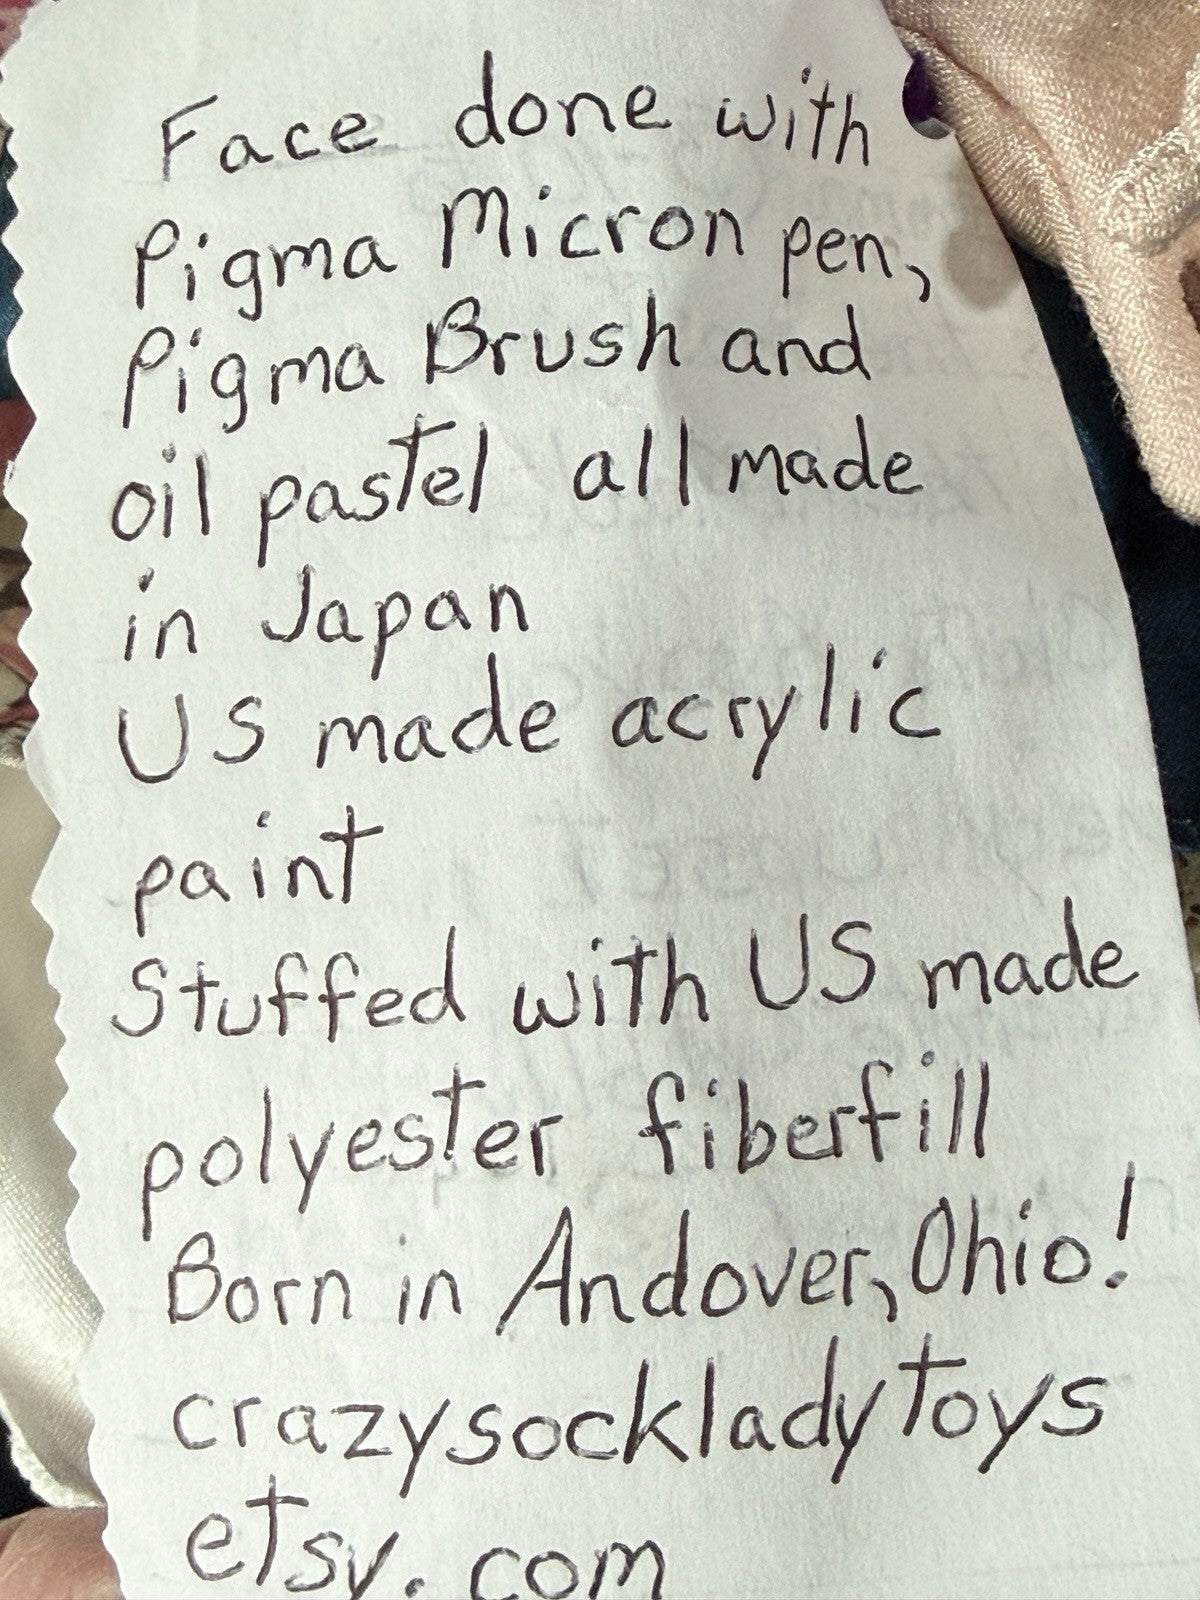 Face done with
Pigma Micron pen,
Pigma Brush and
oil pastel all made
in Japan
US made acrylic
paint
Stuffed with US made
polyester fiberfill
Born in Andover, Ohio!
crazysockladytoys
etsy.com